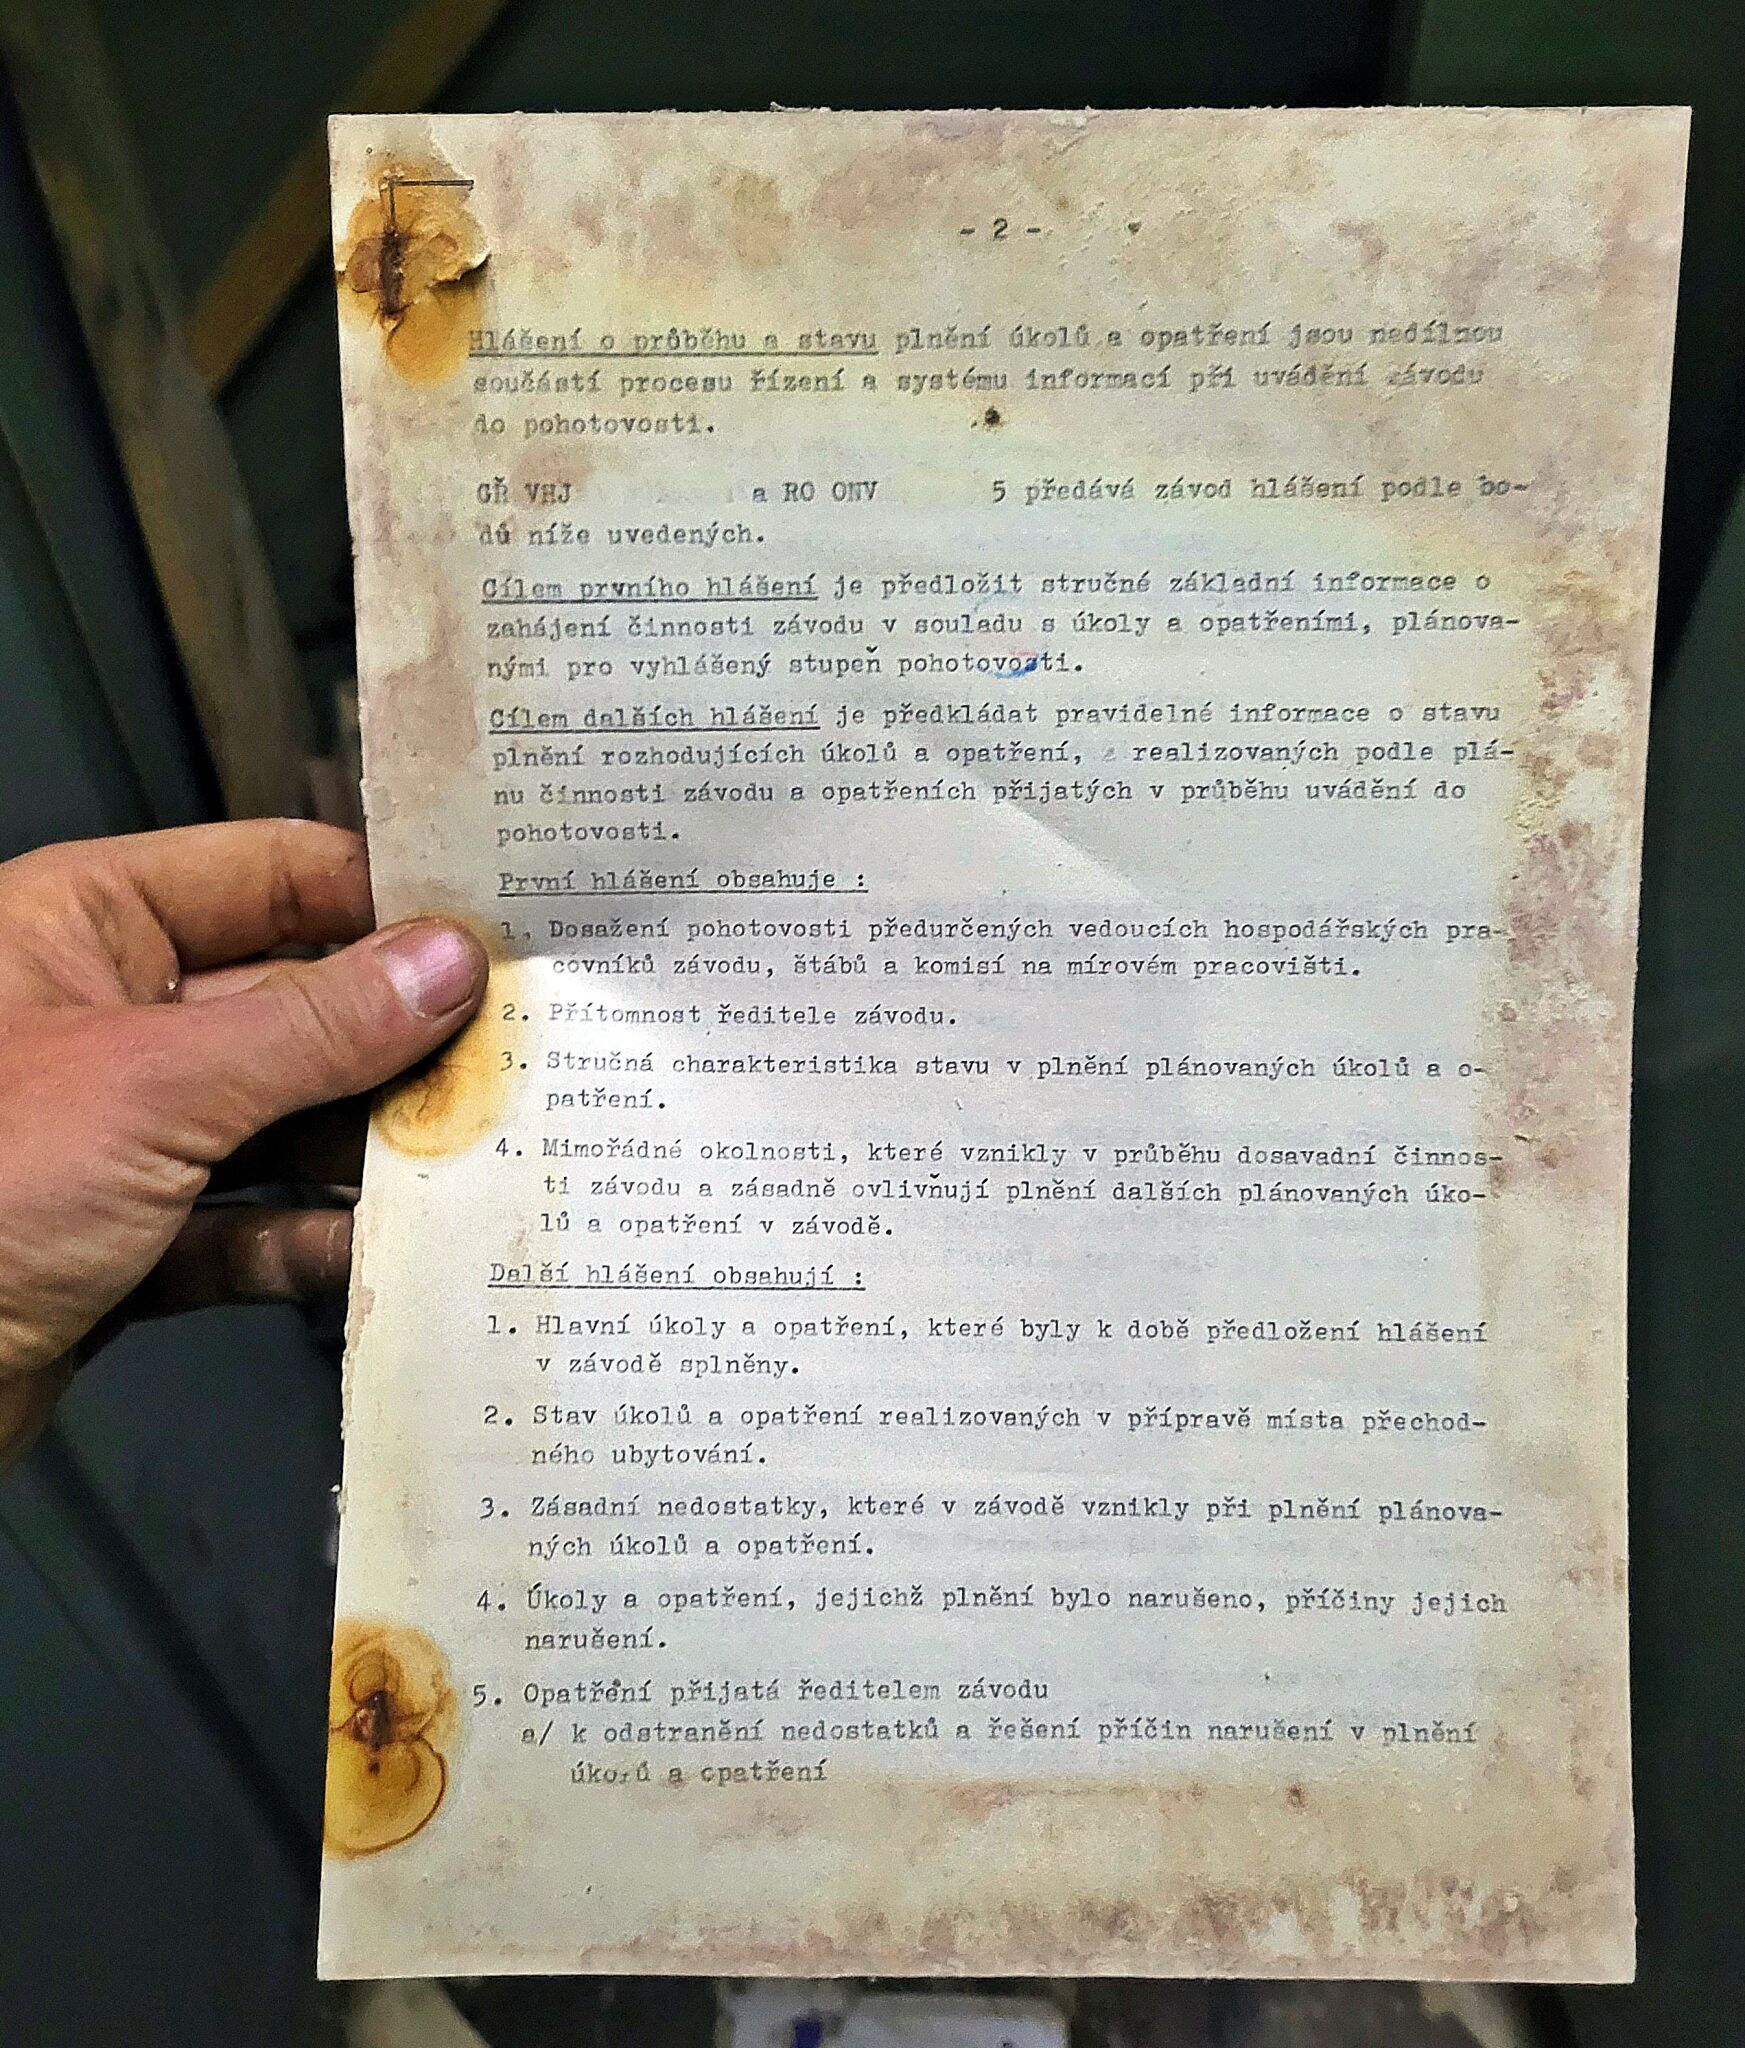 - 2 -
Hlášení o průběhu a stavu plnění úkolů a opatření jsou nedílnou
součástí procesu řízení a systému informací při uvádění závodu
do pohotovosti.
GŘ VHJ a RO ONV 5 předává závod hlášení podle bo-
dů níže uvedených.
Cílem prvního hlášení je předložit stručné základní informace o
zahájení činnosti závodu v souladu s úkoly a opatřeními, plánova-
nými pro vyhlášený stupeň pohotovosti.
Cílem dalších hlášení je předkládat pravidelné informace o stavu
plnění rozhodujících úkolů a opatření, realizovaných podle plá-
nu činnosti závodu a opatřeních přijatých v průběhu uvádění do
pohotovosti.
První hlášení obsahuje :
1. Dosažení pohotovosti předurčených vedoucích hospodářských pra-
covníků závodu, štábů a komisí na mírovém pracovišti.
2. Přítomnost ředitele závodu.
3. Stručná charakteristika stavu v plnění plánovaných úkolů a o-
patření.
4. Mimořádné okolnosti, které vznikly v průběhu dosavadní činnos-
ti závodu a zásadně ovlivňují plnění dalších plánovaných úko-
lů a opatření v závodě.
Další hlášení obsahují :
1. Hlavní úkoly a opatření, které byly k době předložení hlášení
v závodě splněny.
2. Stav úkolů a opatření realizovaných v přípravě místa přechod-
ného ubytování.
3. Zásadní nedostatky, které v závodě vznikly při plnění plánova-
ných úkolů a opatření.
4. Úkoly a opatření, jejichž plnění bylo narušeno, příčiny jejich
narušení.
5. Opatření přijatá ředitelem závodu
a/ k odstranění nedostatků a řešení příčin narušení v plnění
úkolů a opatření